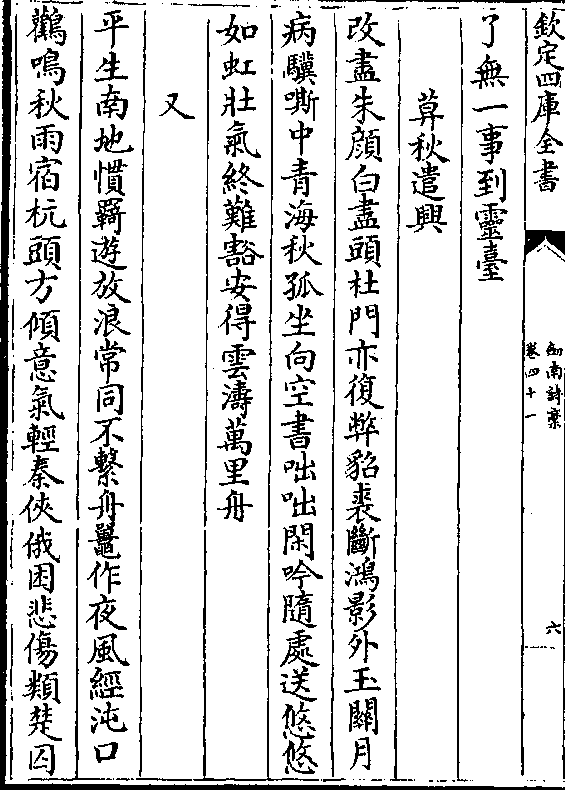 欽定四庫全書
劍南詩稾
卷四十一
六
了無一事到靈臺
暮秋遣興
改盡朱顔白盡頭杜門亦復弊貂裘斷鴻影外玉闗月
病驥嘶中青海秋孤坐向空書咄咄閑吟隨處送悠悠
如虹壯氣終難豁安得雲濤萬里舟
又
平生南地慣羇遊放浪常同不繫舟鼉作夜風經沌口
鸛鳴秋雨宿杭頭方傾意氣輕秦俠俄困悲傷類楚囚